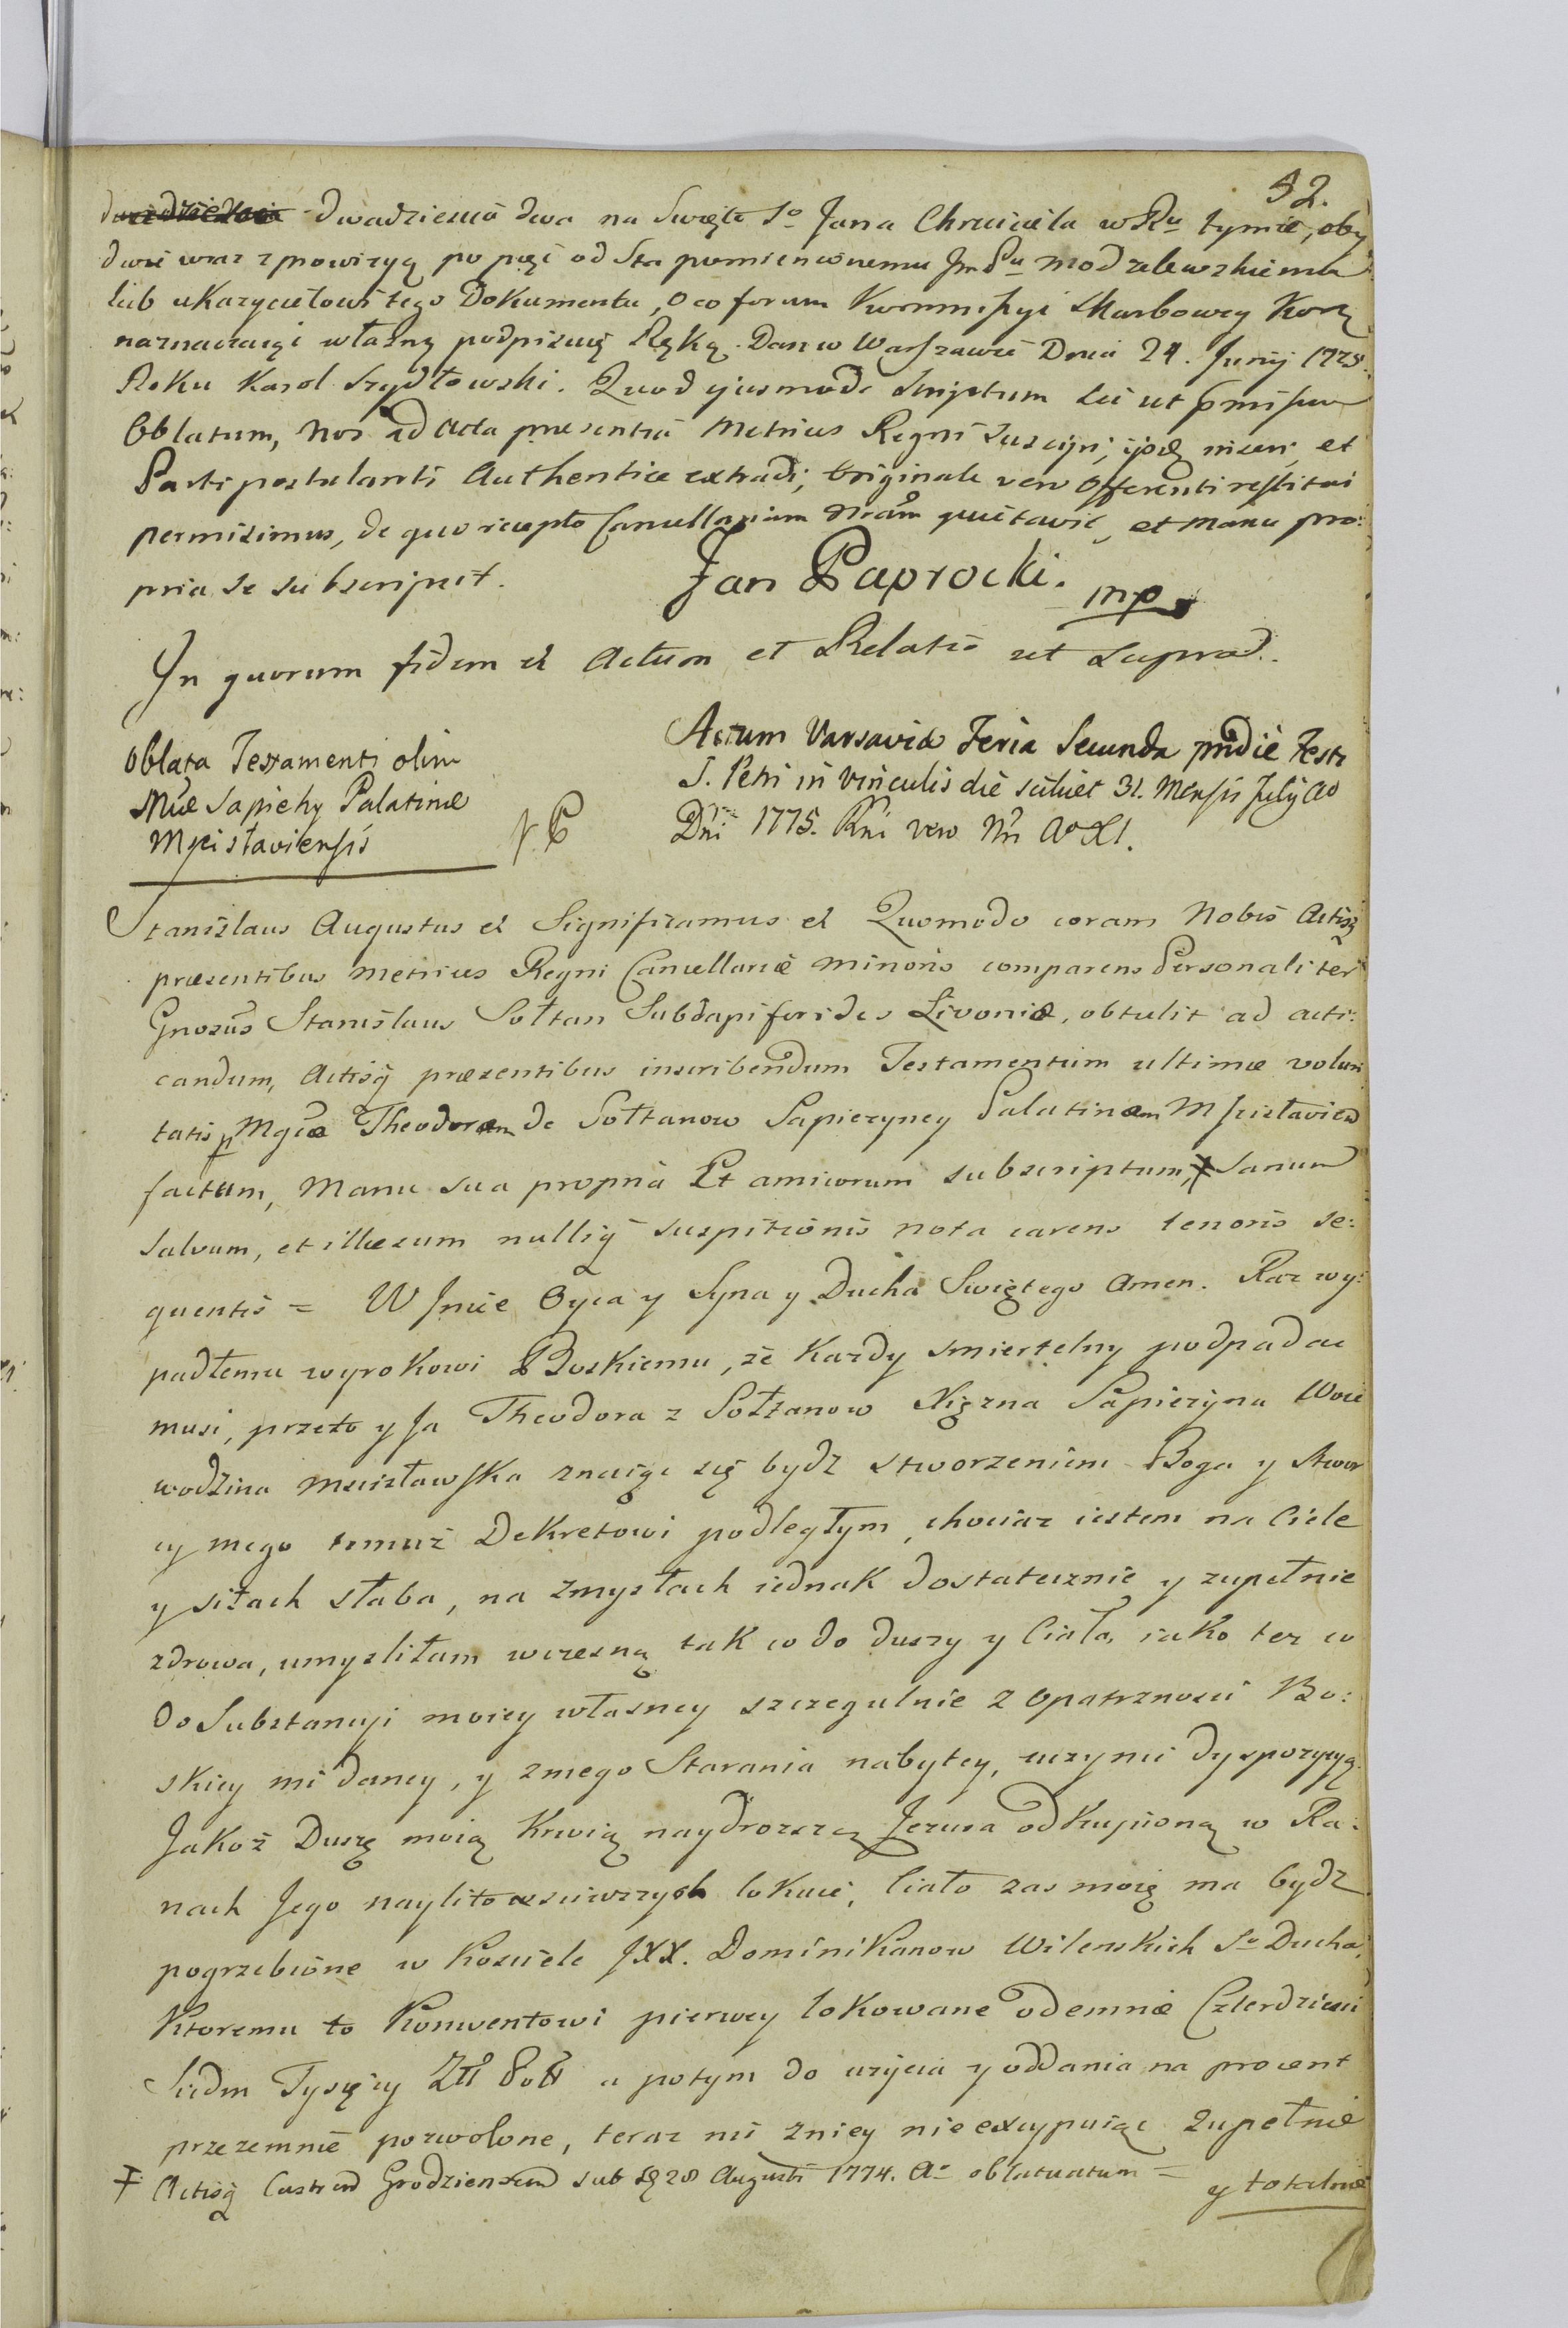 52.
dwadziescia dwa na Swięto So Jana Chrzciciela w Ru tymże, oby
dwie wraz z prowizyą po pięć od Sta pomienionemu Jm Pu Modzelewskiemu
lub ukazycielowi tego Dokumentu, o co forum Kommissyi Skarbowey Kor
naznaczaiąc własną podpisuię Ręką. Dan w Warszawie Dnia 24. Junij 1775.
Roku Karol Szydłowski. Quod ejusmodi Scriptum sic ut pmissum
Oblatum, Nos ad Acta praesentia Metrices Regni suscipi, ijsq inseri, et
Parti postulanti Authentice extradi, Originale vero Offerenti restitui
permisimus, de quo recepto Cancellariam Nram quietavit, et manu pro:
pria se subscripsit. Jan Paprocki. mp
In quorum fidem et Actum et Relatio ut Supra.
Oblata Testamenti olim
Mcae Sapiehy Palatinae
Mscislaviensis
Actum Varsaviae Feria Secunda pridie Festi
S. Petri in Vinculis die scilicet 31. Mensis Julij Ao
Dni 1775. Rni vero Nri Ao XI.
Stanislaus Augustus et Significamus et Quomodo coram Nobis Actisq
praesentibus Metrices Regni Cancellariae Minoris comparens Personaliter
Gnosus Stanislaus Sołtan Subdapiferides Livoniae, obtulit ad acti:
candum, Actisq praesentibus inscribendum Testamentum ultimae volun
tatis p Mgcae Theodoram de Sołtanow Sapiezyney Palatinam Mscislavien
factum, Manu sua propria Et amicorum subscriptum, ┼ Sanum
salvum, et illaesum nulliq suspitionis nota carens tenoris se:
quentis = W Jmie Oyca y Syna y Ducha Swiętego Amen. Raz wy:
padłemu wyrokowi Boskiemu, że Kazdy smiertelny podpadac
musi, przeto y Ja Theodora z Sołtanow Xięzna Sapiezyna Woie
wodzina Mscisławska znaiąc się bydz stworzeniem Boga y Stwor
cy mego temuż Dekretowi podległym, chociaz iestem na Ciele
y siłach słaba, na zmysłach iednak dostatecznie y zupełnie
zdrowa, umysliłam wczesną tak co do duszy y Ciała, iako tez co
do Substancyi moiey własney szczegulnie z Opatrznosci Bo:
skiey mi daney, y z mego Starania nabytey, uczynic dyspozycyą.
Jakoż Duszę moią Krwią naydrozszą Jezusa odkupioną w Ra:
nach Jego naylitosciwszych lokuię, Ciało zas moię ma bydz
pogrzebione w Kosciele JXX. Dominikanow Wilenskich So Ducha,
Ktoremu to Konwentowi pierwey lokowane odemnie Czterdziesci
Siedm Tysięcy Złł Poll a potym do uzycia y oddania na procent
przezemnie pozwolone, teraz nic z niey nieexcypuiąc zupełnie
┼ Actisq Castren Grodziensem sub d 28 Augusti 1774. Ao oblatuatum =
y totalnie